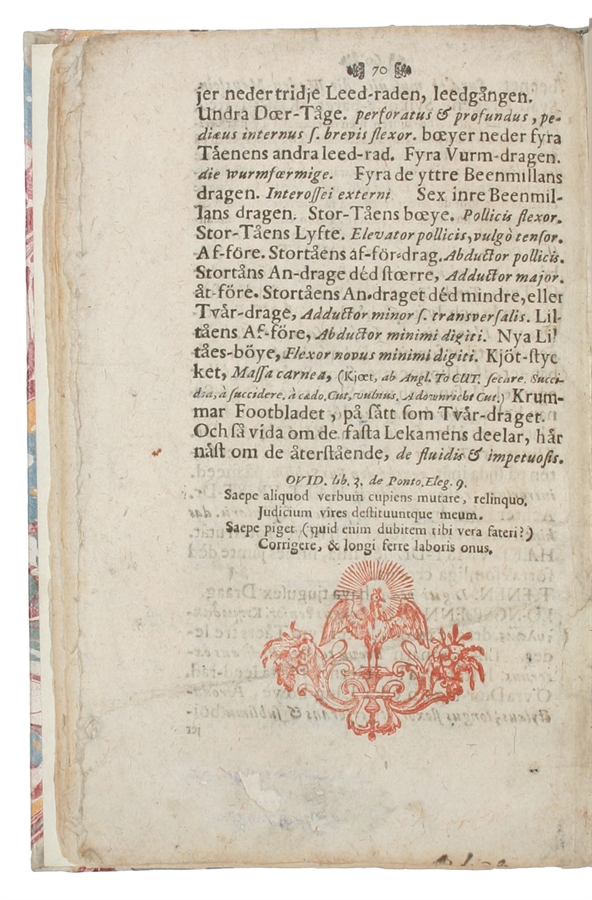 70
jer neder tridje Leed-raden, leedgången.
Undra Dœr-Tåge. perforatus & profundus, pe-
diæus internus ſ. brevis flexor. bœyer neder fyra
Tåenens andra leed-rad. Fyra Vurm-dragen.
die wurmfœrmige. Fyra de yttre Beenmillans
dragen. Interoſſei externi Sex inre Beenmil-
lans dragen. Stor-Tåens bœye. Pollicis flexor.
Stor-Tåens Lyfte. Elevator pollicis, vulgò tenſor.
Af-före. Stortåens af-för-drag. Abductor pollicis.
Stortåns An-drage déd ſtœrre, Adductor major.
åt-före. Stortåens An.draget déd mindre, eller
Tvår-drage, Adductor minor ſ. transverſalis. Lil-
tåens Af-före, Abductor minimi digiti. Nya Lil
tåes-böye, Flexor novus minimi digiti. Kjöt-ſtyc
ket, Maſſa carnea, (Kjœt, ab Angl. To CUT. ſecare. Succi-
dia, à ſuccidere, à cædo. Cut, vulnus. A downricht Cut.) Krum-
mar Footbladet, på ſått ſom Tvår-draget.
Och ſå vida om de faſta Lekamens deelar, hår
nåſt om de återſtående, de fluidis & impetuoſis.
OVID. lib. 3. de Ponto. Eleg. 9.
Saepe aliquod verbum cupiens mutare, relinquo,
Judicium vires deſtituuntque meum.
Saepe piget (quid enim dubitem tibi vera fateri?)
Corrigere, & longi ferre laboris onus.